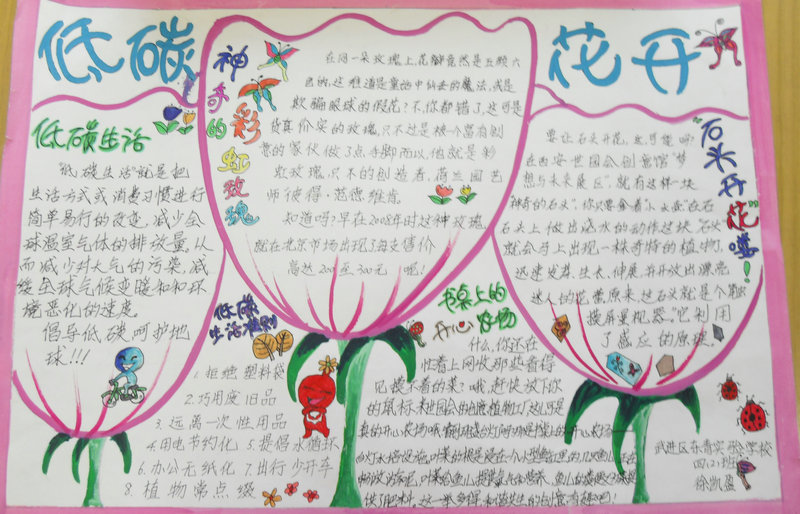 低碳
花开
神奇的
彩虹玫瑰
在同一朵玫瑰上,花瓣竟然是五颜六
色的,这难道是童话中仙女的魔法,或是
欺骗眼球的假花?不,你都错了,这可是
货真价实的玫瑰,只不过是被个富有创
意的家伙做了点手脚而以,他就是彩
虹玫瑰,只不的创造者,荷兰园艺
师彼得·范德维肯。
知道吗?早在2008年时这种玫瑰
就在北京市场出现了每支售价
高达200至300元 呢!
低碳生活
“低碳生活”就是把
生活方式或消费习惯进行
简单易行的改变,减少全
球温室气体的排放量,从
而减少对大气的污染,减
缓全球气候变暖和和环
境恶化的速度。
倡导低碳呵护地
球!!!
“石头开花”喽!
要让石头开花,这可能吗?
在西安世园会创意馆“梦
想与未来展区”,就有这样一块
神奇的石头”,你只要拿着小水壶在石
石头上做出浇水的动作过块,石头
就会马上出现一株奇特的植物,
迅速发芽、生长、伸展并开放出漂亮
迷人的花蕾原来,这石头就是个触
摸屏显视器,它利用
了感应的原理。
低碳
生活准则
1.拒绝塑料袋
2.巧用废旧品
3.远离一次性用品
4.用电节约化 5.提倡水循环
6.办公无纸化 7.出行少开车
8.植物常点缀
书桌上的
开心农场
什么,你还在
忙着上网收那些看得
见摸不着的菜?哦,赶快放下你
的鼠标,
武进区东青实验学校
四(2)班
徐凯盈